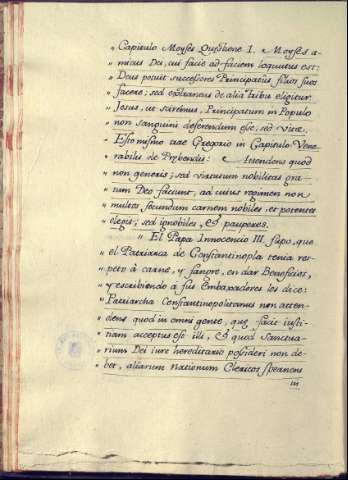 " Capitulo Moyses Quęstione I. Moyses a-
" micus Dei, cui facie ad faciem loquutus est:
" Deus potuit succesores Principatus filios suos
" facere; sed extraneus de alia tribu eligitur
" Jesus, ut sciremus, Principatum in Populo
" non sanguini deferendum esse, sed vitæ.
" Esto mismo trae Gregorio in Capitulo Vene-
" rabilis de Prębendis: Attendens quod
" non generis; sed virtutum nobilitas gra-
" tum Deo faciunt, ad cuius regimen non
" multos secundum carnem nobiles, et potentes
" elegit; sed ignobiles, et pauperes.
" El Papa Innocencio III. supo, que
" el Patriarca de Constantinopla tenia res-
" peto à carne, y sangre, en dar Beneficios,
" y escribiendo à sus Embaxadores les dice:
" Patriarcha Constantinopolitanus non atten-
" dens quod in omni gente, que facit iusti-
" tiam acceptus est illi, et quod Sanctua-
" rium Dei iure hereditario possideri non de-
" bet, aliarum Nationum Clericos spernens
in